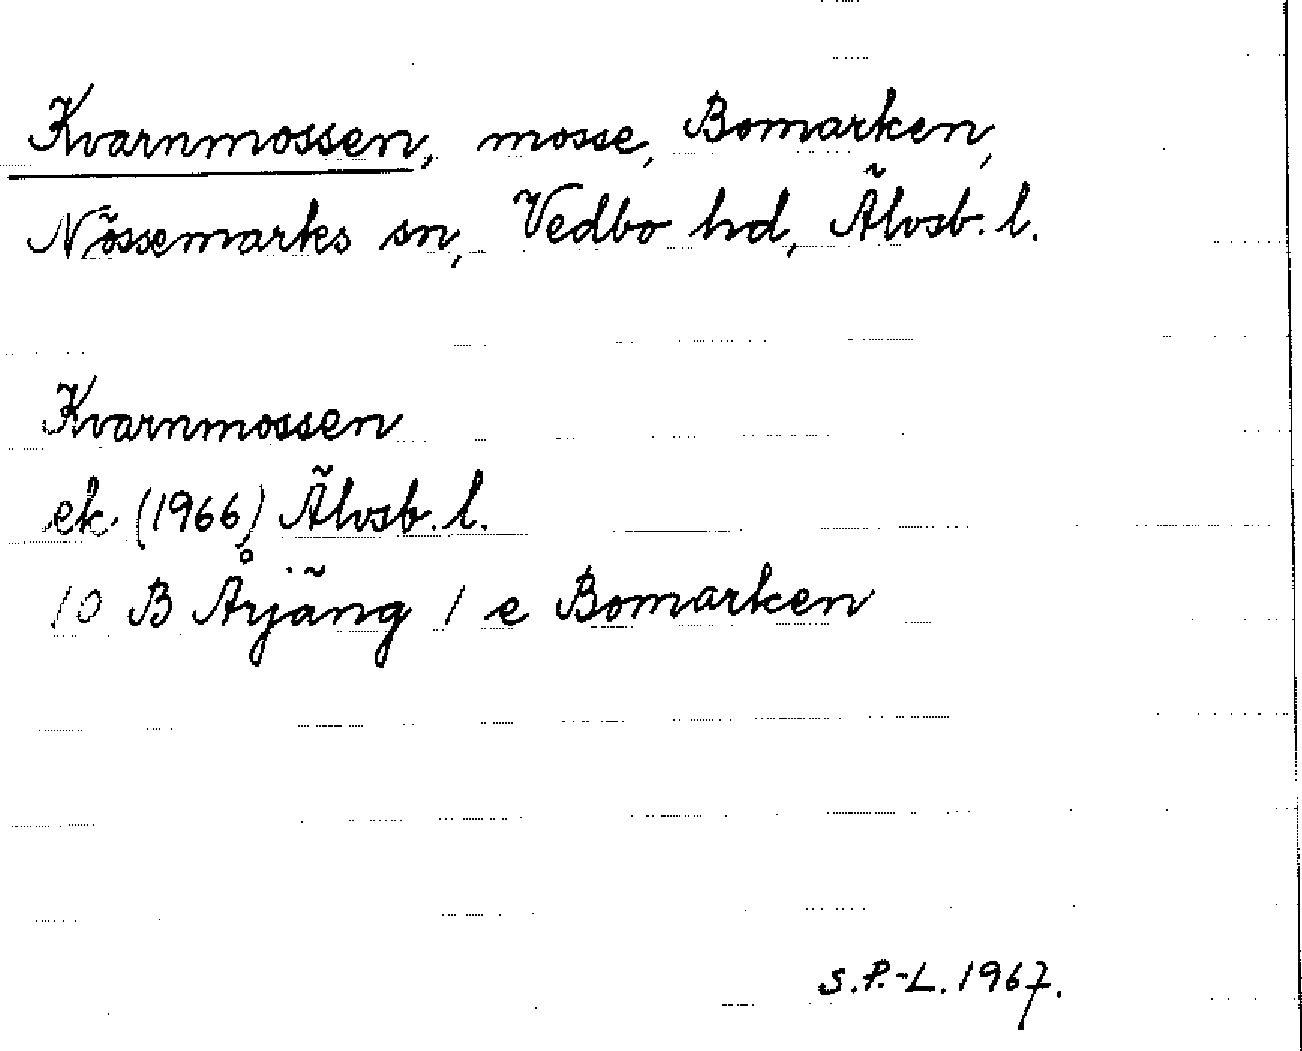 Kvarnmossen, mosse, Bomarken,
Nössemarks sn, Vedbo hd, Älvsb. l.
Kvarnmossen
ek (1966) Älvsb. l.
10 B Årjäng 1 e Bomarken
S.P.-L. 1967.